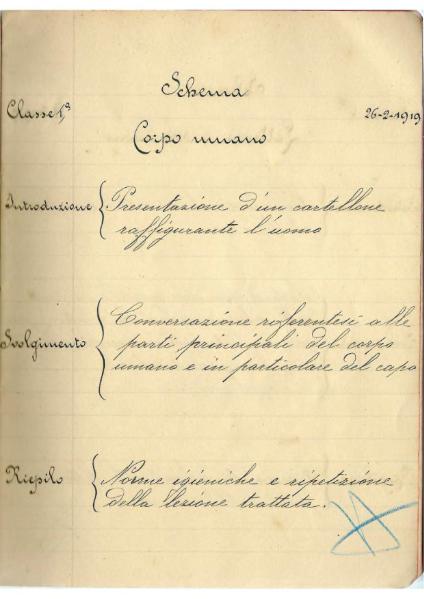 Schema
Classe 1ª
26-2-1919
Corpo umano
Introduzione { Presentazione d'un cartellone
raffigurante l'uomo
Svolgimento { Conversazione riferentesi alle
parti principali del corpo
umano e in particolare del capo
Riepilo { Norme igieniche e ripetizione
della lezione trattata.